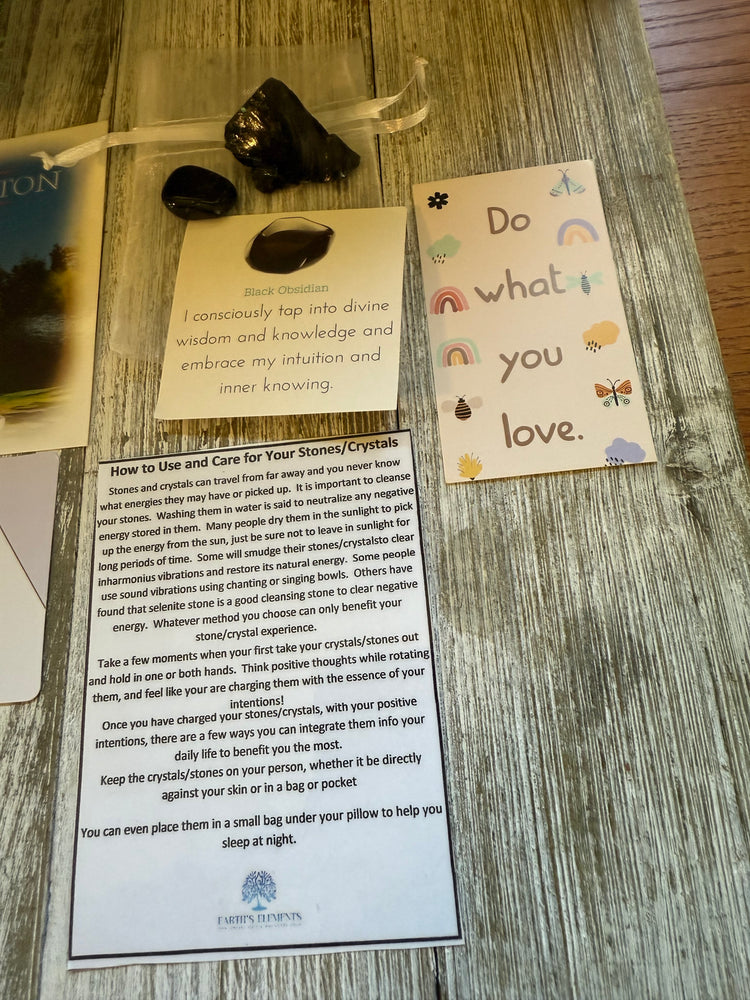 TON
Black Obsidian
I consciously tap into divine
wisdom and knowledge and
embrace my intuition and
inner knowing.
Do
what
you
love.
How to Use and Care for Your Stones/Crystals
Stones and crystals can travel from far away and you never know
what energies they may have or picked up. It is important to cleanse
your stones. Washing them in water is said to neutralize any negative
energy stored in them. Many people dry them in the sunlight to pick
up the energy from the sun, just be sure not to leave in sunlight for
long periods of time. Some will smudge their stones/crystalsto clear
inharmonius vibrations and restore its natural energy. Some people
use sound vibrations using chanting or singing bowls. Others have
found that selenite stone is a good cleansing stone to clear negative
energy. Whatever method you choose can only benefit your
stone/crystal experience.
Take a few moments when your first take your crystals/stones out
and hold in one or both hands. Think positive thoughts while rotating
them, and feel like your are charging them with the essence of your
intentions!
Once you have charged your stones/crystals, with your positive
intentions, there are a few ways you can integrate them info your
daily life to benefit you the most.
Keep the crystals/stones on your person, whether it be directly
against your skin or in a bag or pocket
You can even place them in a small bag under your pillow to help you
sleep at night.
EARTH'S ELEMENTS